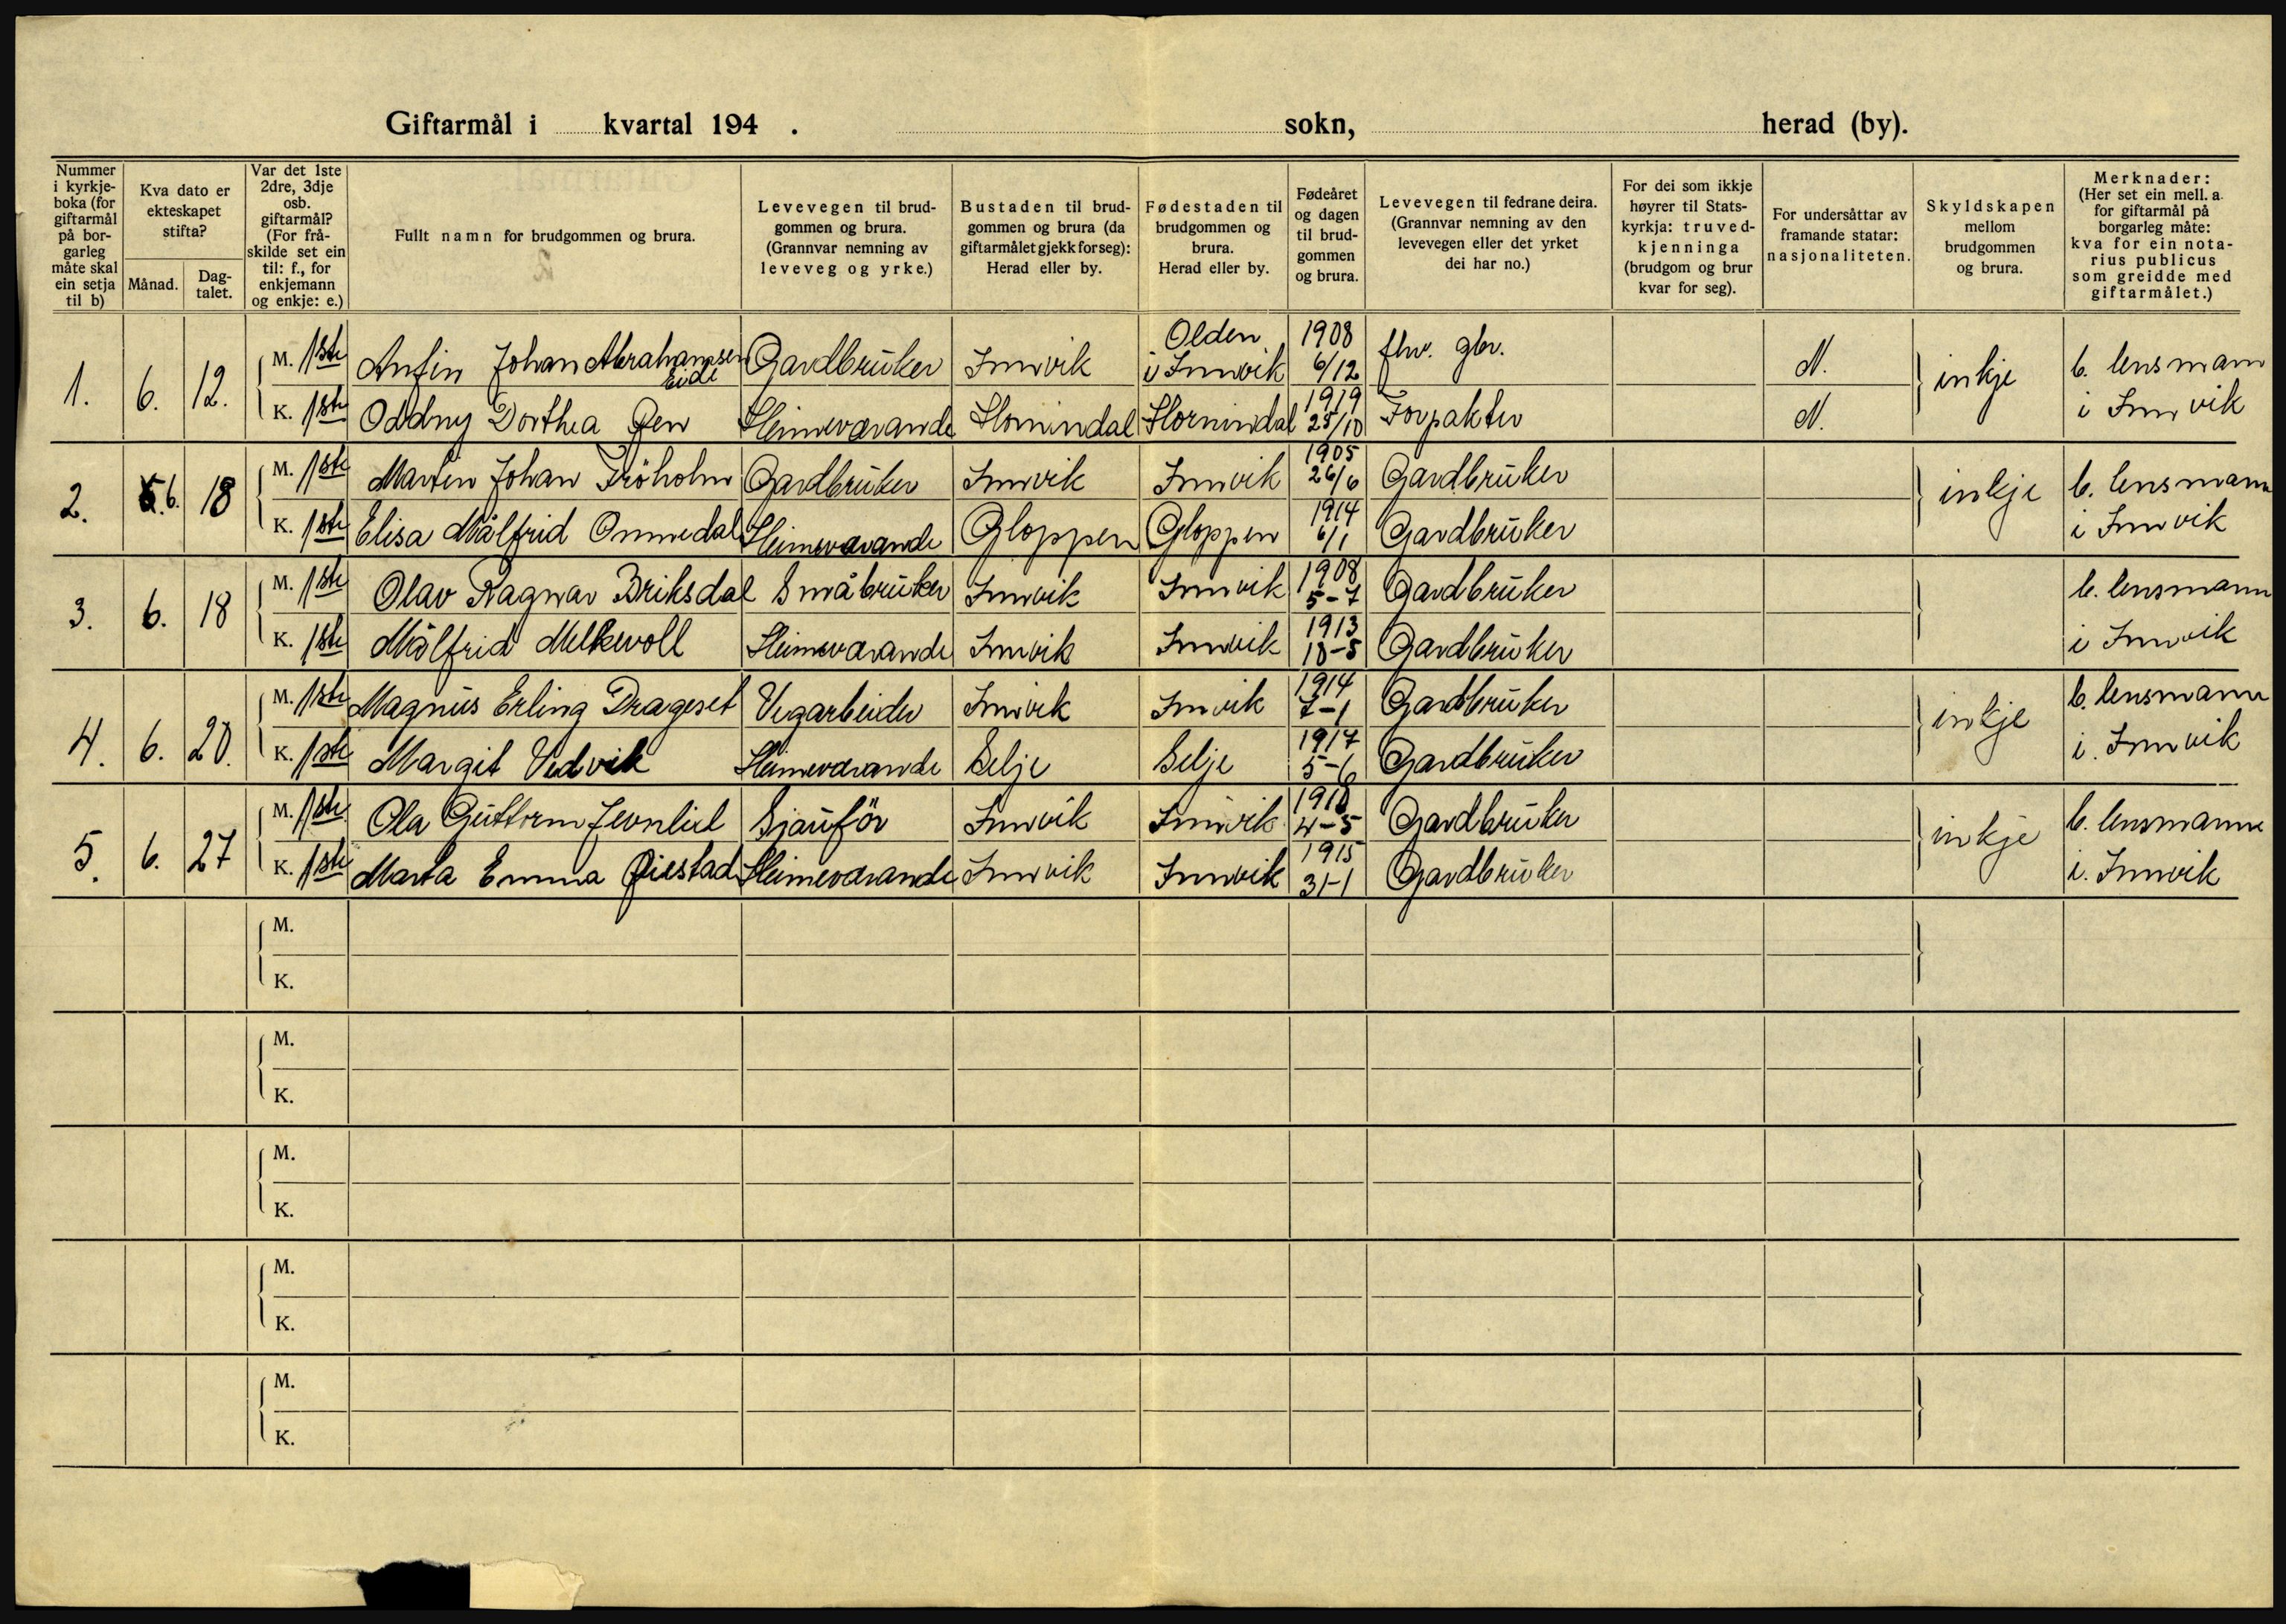 Giftarmål i ........ kvartal 194 . sokn, herad (by).
Nummer i kyrkje-boka (for giftarmål på bor-garleg måte skal ein setja til b)
Kva dato er ekteskapet stifta?
Månad.
Dag-talet.
Var det 1ste 2dre, 3dje osb. giftarmål? (For frå-skilde set ein til: f., for enkjemann og enkje: e.)
Fullt namn for brudgommen og brura.
Levevegen til brud-gommen og brura. (Grannvar nemning av leveveg og yrke.)
Bustaden til brud-gommen og brura (da giftarmålet gjekk for seg): Herad eller by.
Fødestaden til brudgommen og brura. Herad eller by.
Fødeåret og dagen til brud-gommen og brura.
Levevegen til fedrane deira. (Grannvar nemning av den levevegen eller det yrket dei har no.)
For dei som ikkje høyrer til Stats-kyrkja: truved-kjenninga (brudgom og brur kvar for seg).
For undersåttar av framande statar: nasjonaliteten.
Skyldskapen mellom brudgommen og brura.
Merknader: (Her set ein mell. a. for giftarmål på borgarleg måte: kva for ein nota-rius publicus som greidde med giftarmålet.)
1. 6. 12. M. 1ste Anfin Johan Abrahamsen Eide Gardbruker Innvik Olden i Innvik 1908 6/12 fhv. gbr. N. inkje b. lensmann
K. 1ste Oddny Dorthea Heimeverande Hornindal Hornindal 1919 25/10 Forpakter N. i Innvik
2. 6. 18 M. 1ste Marten Johan Gardbruker Innvik Innvik 1905 26/6 Gardbruker inkje b. lensmann
K. 1ste Elisa Målfrid Ommedal Heimeverande Gloppen Gloppen 1914 6/1 Gardbruker i Innvik
3. 6. 18 M. 1ste Olav Ragnar Briksdal Småbruker Innvik Innvik 1908 5-7 Gardbruker b. lensmann
K. 1ste Målfrid Melkevoll Heimeverande Innvik Innvik 1913 10-5 Gardbruker i Innvik
4. 6. 20. M. 1ste Magnus Erling Drageset Vegarbeider Innvik Innvik 1914 7-1 Gardbruker inkje b. lensmann
K. 1ste Margit Vedvik Heimeverande Selje Selje 1917 5-6 Gardbruker i. Innvik
5. 6. 27 M. 1ste Ola Guttorm Sjauför Innvik Innvik 1910 4-5 Gardbruker inkje b. lensmann
K. 1ste Marta Emma Øiestad Heimeverande Innvik Innvik 1915 31-1 Gardbruker i. Innvik
M.
K.
M.
K.
M.
K.
M.
K.
M.
K.